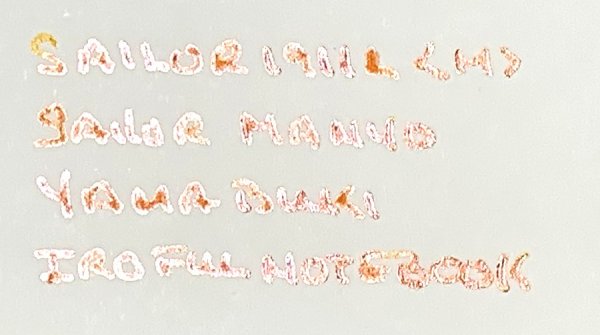 SAILOR 1911L <M>
SAILOR MANYO
YAMABUKI
IROFUL NOTEBOOK